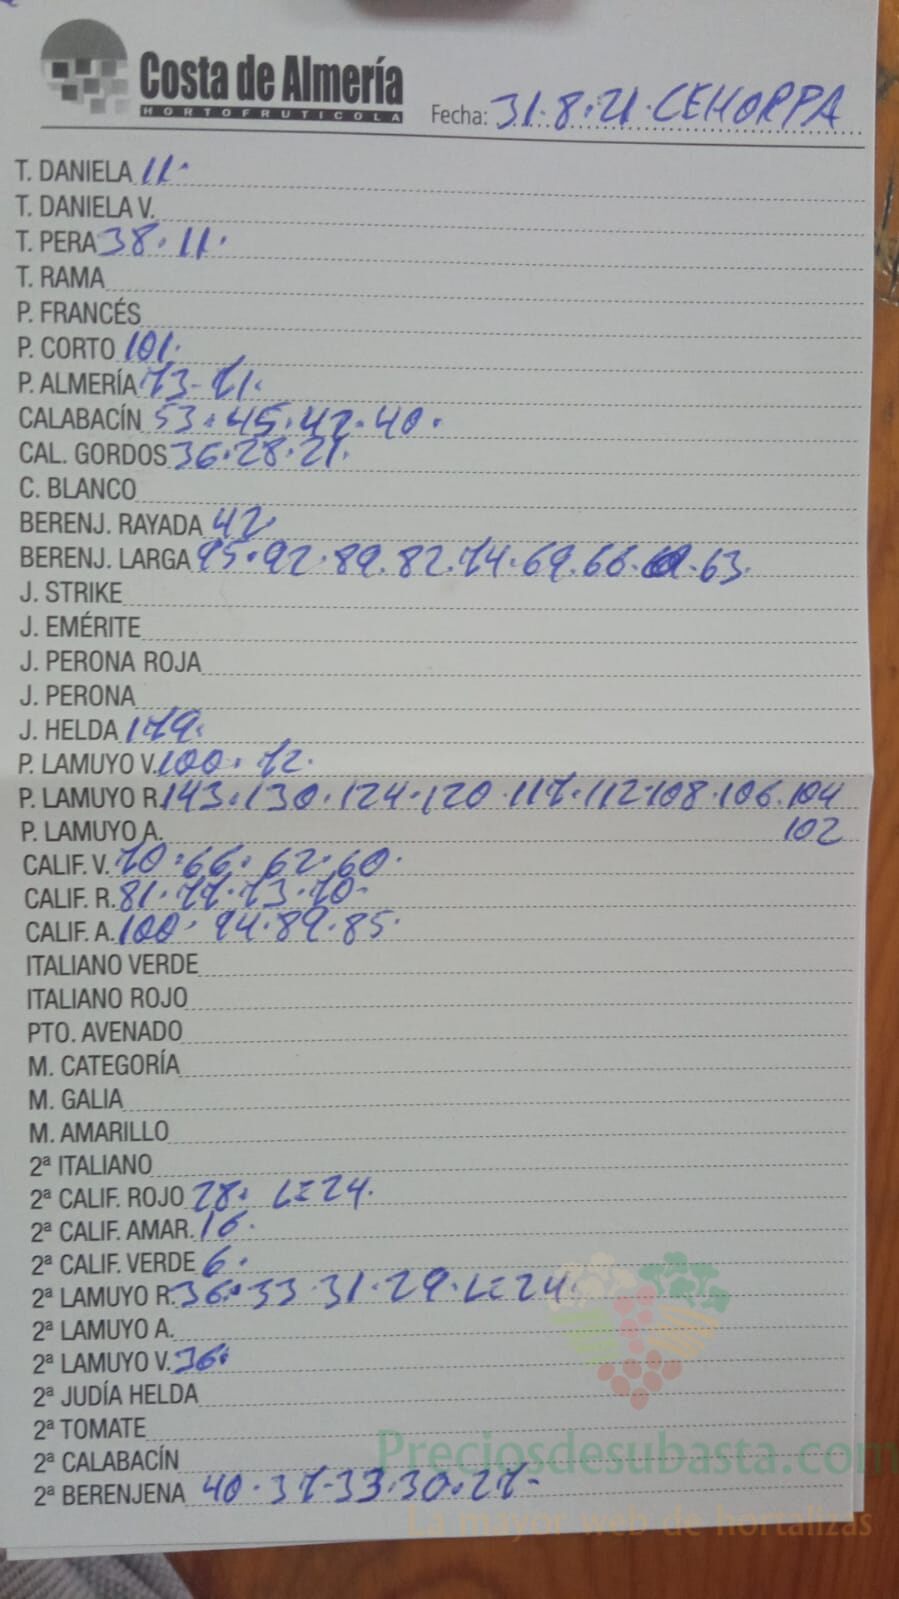 Costa de Almería
HORTOFRUTICOLA
Fecha: 31.8.21. CEHORPA
T. DANIELA 11.
T. DANIELA V.
T. PERA 38.11.
T. RAMA
P. FRANCÉS
P. CORTO 101.
P. ALMERÍA 73-71.
CALABACÍN 53.45.42.40.
CAL. GORDOS 36.28.21.
C. BLANCO
BERENJ. RAYADA 42
BERENJ. LARGA 95.92.89.82.74.69.66. .63.
J. STRIKE
J. EMÉRITE
J. PERONA ROJA
J. PERONA
J. HELDA 179.
P. LAMUYO V. 100.72.
P. LAMUYO R. 143.130.124.120.117.112.108.106.104
P. LAMUYO A. 102
CALIF. V. 70.66.62.60.
CALIF. R. 81.77.73.70-
CALIF. A. 100.94.89.85.
ITALIANO VERDE
ITALIANO ROJO
PTO. AVENADO
M. CATEGORÍA
M. GALIA
M. AMARILLO
2ª ITALIANO
2ª CALIF. ROJO 28. L=24.
2ª CALIF. AMAR. 16.
2ª CALIF. VERDE 6.
2ª LAMUYO R. 36.33.31.29.L=24.
2ª LAMUYO A.
2ª LAMUYO V. 36.
2ª JUDÍA HELDA
2ª TOMATE
2ª CALABACÍN
2ª BERENJENA 40.37-33.30.27-
Preciosdesubasta.com
La mayor web de hortalizas